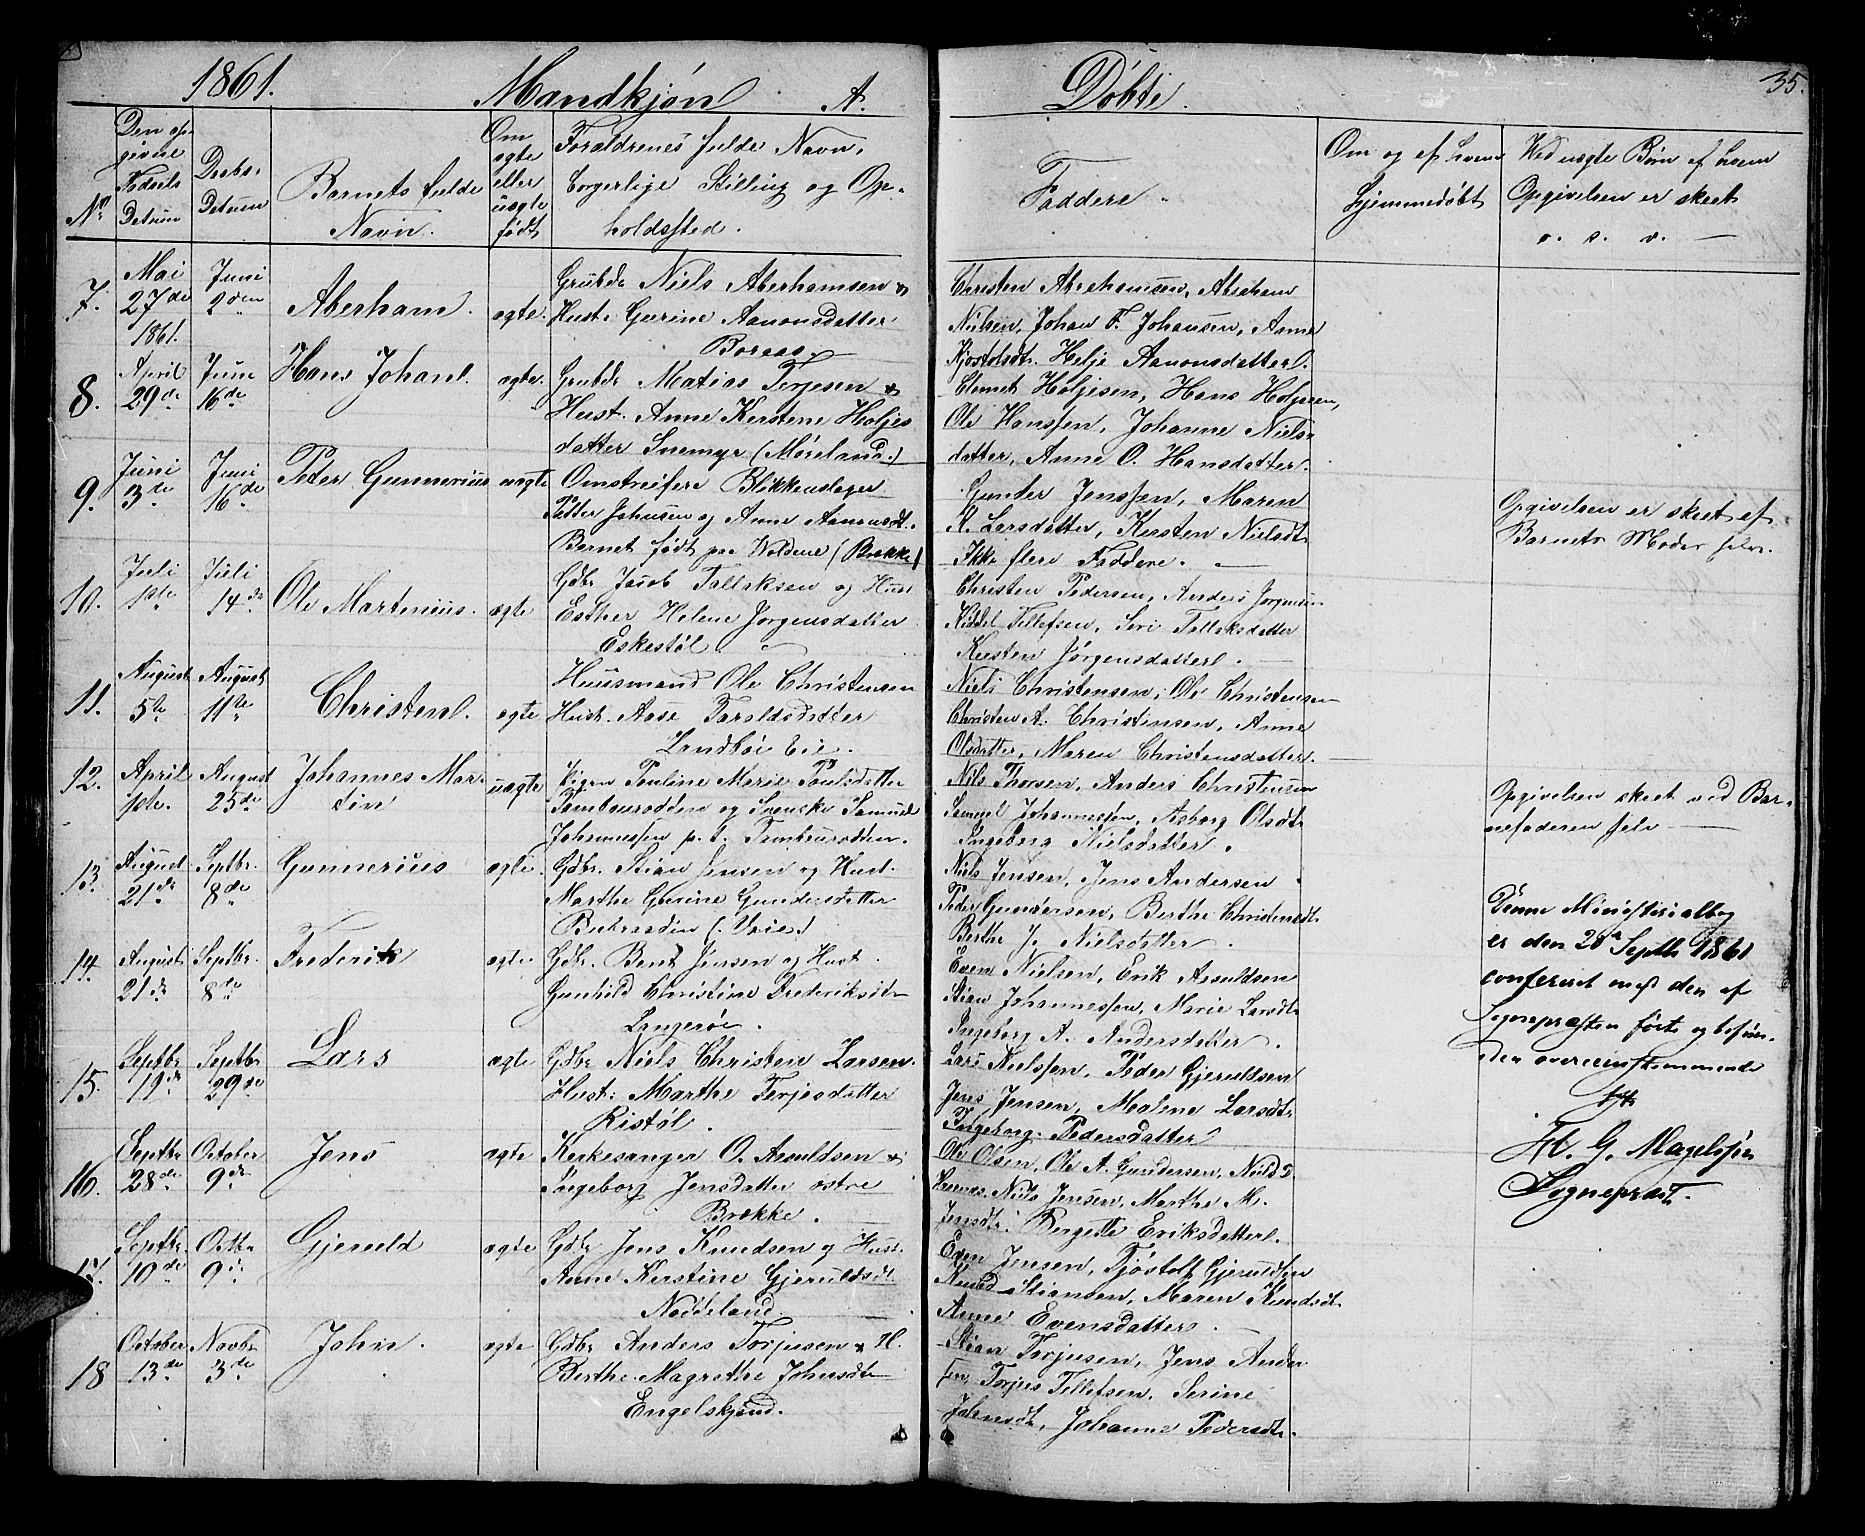 1861. Mandkjøn A. Døbte. 35.
No Den opgivne Fødsels Datum Daabs-Datum Barnets fulde Navn. Om ægte eller uægte født Forældrenes fulde Navn, borgerlige Stilling og Opholdssted. Faddere. Om og af hvem hjemmedøbt Ved uægte Børn af hvem Opgivelsen er skeet o. s. v. —
7. Mai 27de 1861. Juni 2den Aberham. ægte.
Grubdr Niels Aberhamsen &
Hust. Gurine Aanonsdatter
Boraas.
Christen Abrahamsen, Abraham
Nielsen, Johan F. Johansen, Anne
Kjøstolsdt. Helje Aanonsdatter.
8. April 29de Juni 16de Hans Johan. ægte.
Grubdr Matias Terjesen &
Hust. Anne Kerstene Holjes
datter Snemyr (Møreland.)
Clemet Holjesen, Hans Holjesen,
Ole Hanssen, Johanne Niels-
datter, Anne O. Hansdatter.
9. Juni 3de Juni 16de Peder Gunnerius uægte
Omstreifere Blikkenslager
Petter Johnsen og Anne Aanonsdt.
Barnet født paa Woldene (Brække)
Gunder Jenssen, Maren
K. Larsdatter, Kersten Nielsdt.
Ikke flere Faddere. —
Opgivelsen er skeet af
Barnets Moder selv.
10. Juli 1ste Juli 14de Ole Martenius. ægte
Gdbr. Jacob Tallaksen og Hust
Esther Helene Jørgensdatter
Eskestøl
Christen Pedersen, Anders Jørgensen
Kiddel Tellefsen, Seri Tallaksdatter
Kersten Jørgensdatter. —
11. August 5te August 11te Christen. ægte
Huusmand Ole Christensen
Hust. Aase Taraldsdatter
Landbøi Eie.
Niels Christensen, Ole Christensen
Christen A. Christensen, Anne
Olsdatter, Maren Christensdatter. —
12. April 1ste. August 25de Johannes Mar-
tin uægte
Pigen Pauline Marie Paulsdatter
Tambourodden og Svenske Samuel
Johannessen p. t. Tambourodden.
Nils Thorsen, Anders Christensen
Samuel Johannessen, Asborg Olsdt.
Ingeborg Nielsdatter.
Opgivelsen skeet ved Bar-
nefaderen selv —
13. August 21de Septbr. 8de Gunnerius ægte.
Gdbr. Stian Jensen og Hust.
Marthe Gurine Gundersdatter
Niels Jensen, Jens Andersen
Peder Gundersen, Berthe Christensdt.
Berthe J. Nielsdatter.
14. August 21de Septbr. 8de Frederik ægte
Gdbr. Bent Jensen og Hust.
Gunhild Christine Frederiksdt.
Langerøi.
Even Nielsen, Erik Asuldsen
Stian Johannessen, Marie Larsdt.
Ingeborg A. Andersdatter.
Denne Ministerialbog
er den 20de Septb 1861
confereret med den af
Sognepræsten førte og befun-
den overeensstemmende
H. G. Magelssen
Sognepræst.
15. Septbr 19de Septbr 29de Lars ægte
Gdbr Niels Christen Larsen.
Hust: Marthe Terjesdatter
Ristøl.
Lars Nielssen, Peder Gjeruldsen
Jens Jensen, Malene Larsdt.
Ingeborg Pedersdatter
16. Septbr 28de October 9de Jens ægte
Kerkesanger O. Asuldsen &
Ingeborg Jensdatter østre
Brække.
Ole Olsen, Ole A. Gundersen, Niels
Niels Jensen, Marthe M.
Jensdt. Bergitte Eriksdatter.
17. Septbr. 10de Octbr 9de Gjeruld ægte
Gdbr Jens Knudsen og Hust.
Anne Kerstine Gjeruldsdt
Nøddeland.
Even Jensen, Tjøstolf Gjeruldsen
Knud Stiansen, Maren Knudsdt.
Anne Evensdatter. —
18 October 13de Novbr 3de John. ægte
Gdbr Anders Torjusen & H.
Berthe Magrethe Johnsdt
Engelskjønd.
Stian Torjusen, Jens Ander
sen, Torjus Tellefsen, Serine
Johnsdt, Johanne Pedersdt.